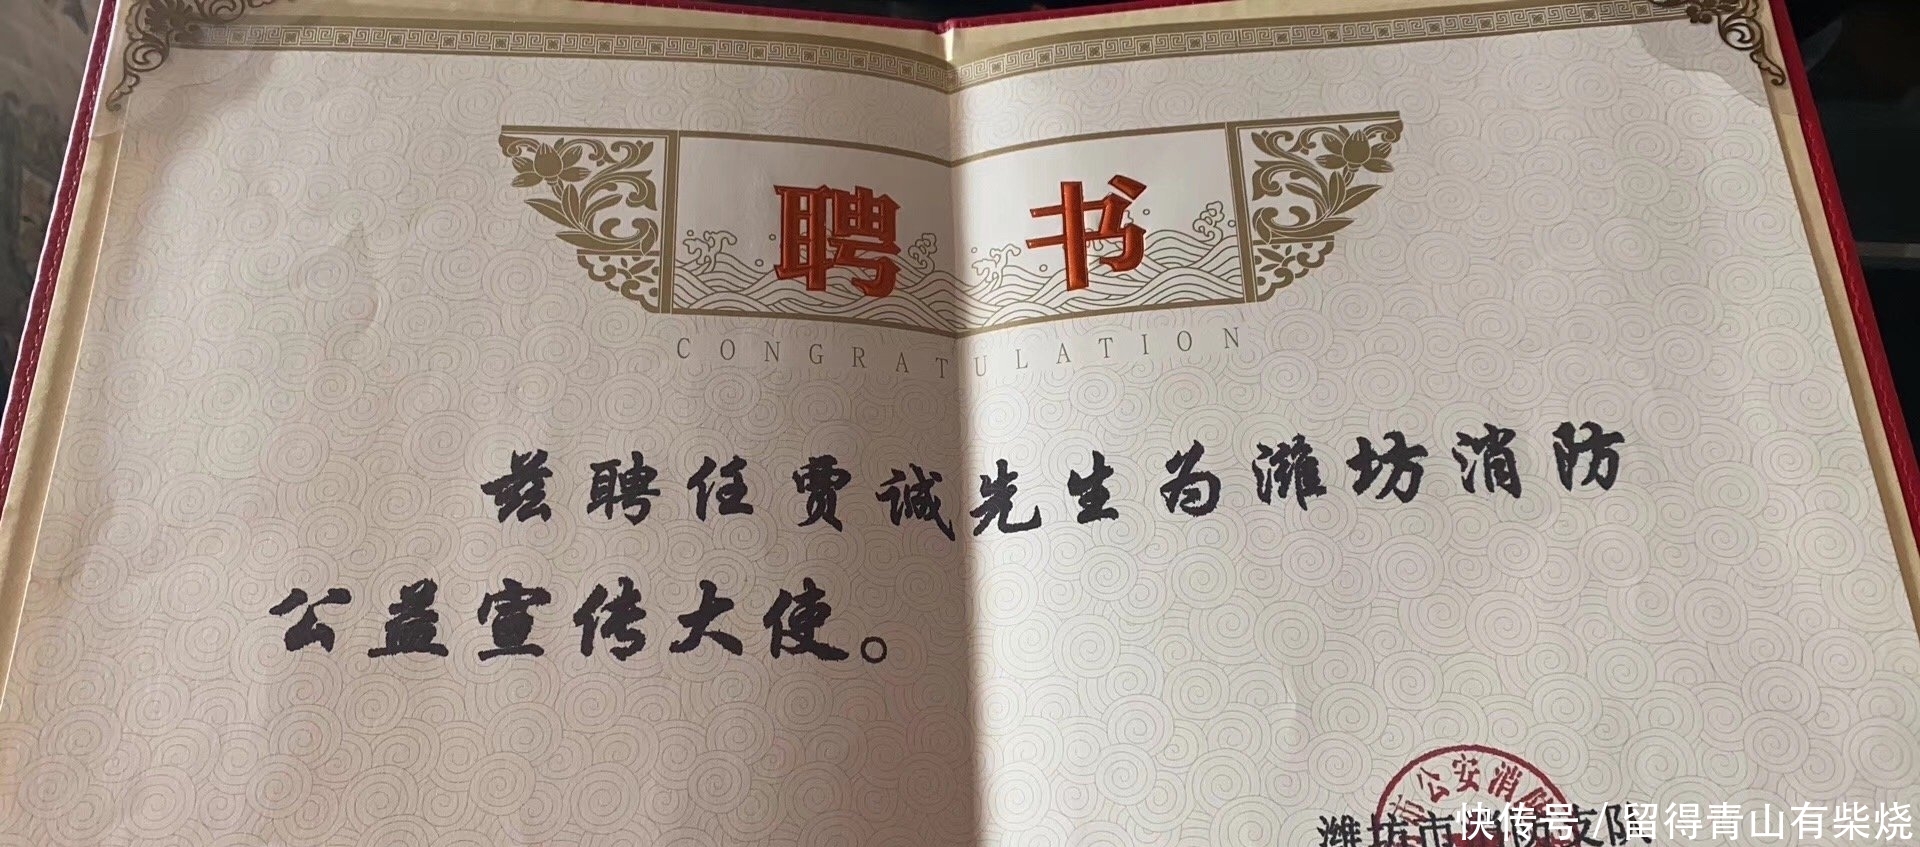 聘书
CONGRATULATION
兹聘任贾诚先生为潍坊消防
公益宣传大使。
市公安消防
潍坊市消防支队
快传号/留得青山有柴烧